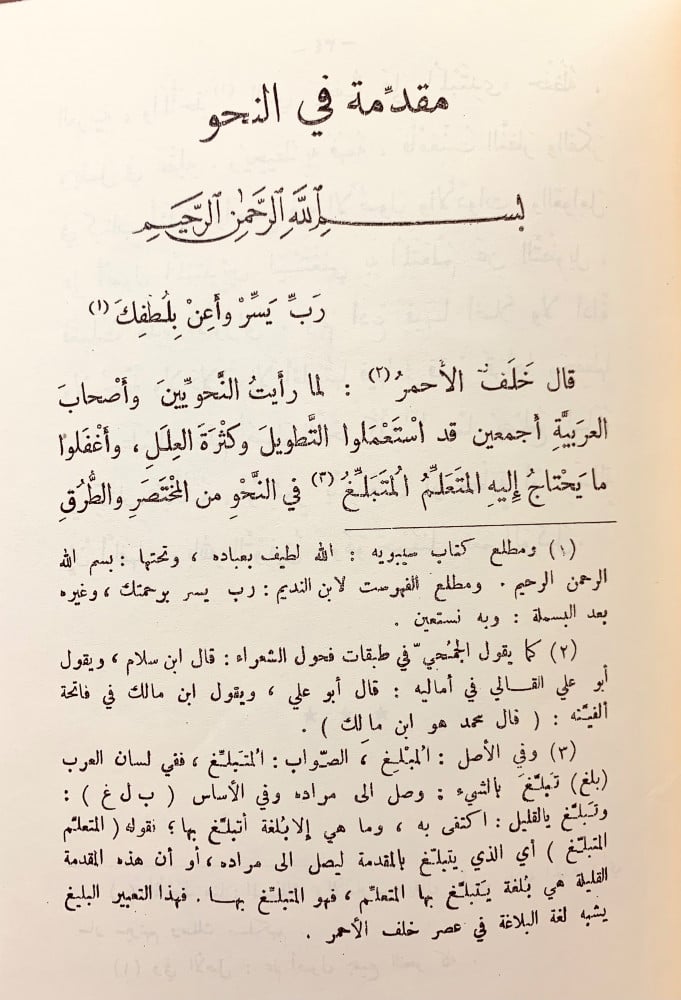 مقدِّمة في النحو
بســـــمِ ٱللَّهِ ٱلرَّحْمٰنِ ٱلرَّحِيمِ
رَبِّ يَسِّرْ وأَعِنْ بِلُطفِكَ (١)
قال خَلَف الأحمرُ (٢) : لما رأَيتُ النَّحوِيِّينَ وأَصْحابَ
العرَبيَّةِ أجمعين قد اسْتَعْمَلوا التَّطويلَ وكثْرَةَ العِلَلِ ، وأغْفَلوا
ما يَحْتاجُ إليهِ المتَعَلِّمُ المُتَبَلِّغُ (٣) في النَّحْوِ من المخْتَصَرِ والطُّرُقِ
(١) ومطلع كتاب سيبويه : الله لطيف بعباده ، وتحتها : بسم الله
الرحمن الرحيم . ومطلع الفهرست لابن النديم : رب يسر برحمتك ، وغيره
بعد البسملة : وبه نستعين .
(٢) كما يقول الجمَحيّ في طبقات فحول الشعراء : قال ابن سلام ، ويقول
أبو علي القـالي في أماليه : قال أبو علي ، ويقول ابن مالك في فاتحة
ألفيَّته : ( قال محمد هو ابن مالك ) .
(٣) وفي الأصل : المُبْلِغ ، الصّواب : المُتبلِّغ ، ففي لسان العرب
(بلغ) تَبلَّغَ بالشيء : وصل الى مراده وفي الأساس ( ب ل غ ) :
وتبلَّغ بالقليل : اكتفى به ، وما هي إلا بُلغة أتبلَّغ بها ؛ نقوله ( المتعلِّم
المتبلّغ ) أي الذي يتبلّغ بالمقدمة ليصل الى مراده ، أو أن هذه المقدمة
القليلة هي بُلغة يَتبلَّغ بها المتعلِّم ، فهو المتبلِّغ بهـا . فهذا التعبير البليغ
يشبه لغة البلاغة في عصر خلف الأحمر .